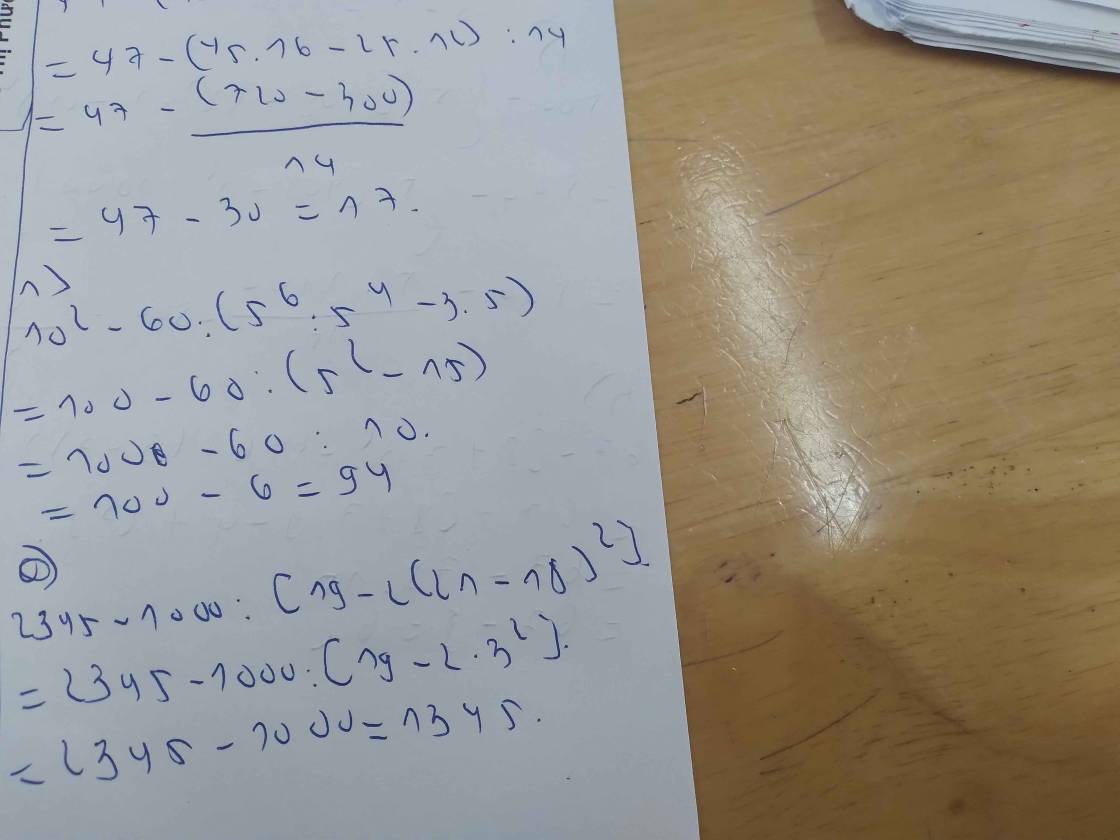 = 47 - (45.16 - 25.12) : 14
= 47 - (720 - 300)
14
= 47 - 30 = 17.
n)
10² - 60 : (5⁶ : 5⁴ - 3.5)
= 100 - 60 : (5² - 15)
= 100 - 60 : 10.
= 100 - 6 = 94
2345 - 1000 : [19 - 2(21 - 18)²]
= 2345 - 1000 : [19 - 2.3²].
= 2345 - 1000 = 1345.